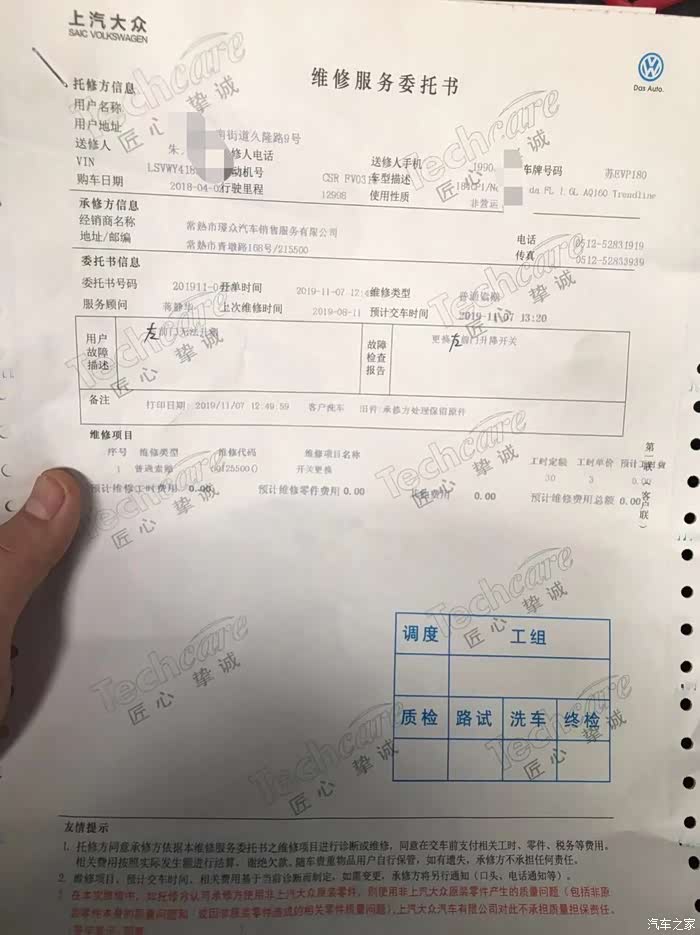 上汽大众
SAIC VOLKSWAGEN
维修服务委托书
Das Auto.
托修方信息
用户名称
用户地址 南街道久隆路9号
送修人 朱 修人电话 送修人手机 1990
VIN LSVWY418 动机号 CSR FV031 车型描述 车牌号码 苏EVP180
da FL 1.6L AQ160 Trendline
购车日期 2018-04-0 行驶里程 12998 使用性质 非营运
承修方信息
经销商名称 常熟市璟众汽车销售服务有限公司 电话 0512-52831919
地址/邮编 常熟市青墩路168号/215500 传真 0512-52833939
委托书信息
委托书号码 201911-0 开单时间 2019-11-07 12:4 维修类型 普通索赔
服务顾问 蒋静华 上次维修时间 2019-08-11 预计交车时间 2019-11-07 13:20
用户故障描述 左前门无法升降 故障检查报告 更换左前门升降开关
备注 打印日期: 2019/11/07 12:49:59 客户洗车 旧件:承修方处理保留原件
维修项目
序号 维修类型 维修代码 维修项目名称 工时定额 工时单价 预计工时费
1 普通索赔 开关更换 30 3 0.00
预计维修工时费用 0.00 预计维修零件费用 0.00 费用 0.00 预计维修费用总额 0.00
第一联(客户联)
调度 工组
质检 路试 洗车 终检
Techcare
匠心 挚诚
友情提示
1. 托修方同意承修方依据本维修服务委托书之维修项目进行诊断或维修,同意在交车前支付相关工时、零件、税务等费用。
相关费用按照实际发生额进行结算,谢绝欠款。随车贵重物品用户自行保管,如有遗失,承修方不承担任何责任。
2. 维修项目、预计交车时间、相关费用基于当前诊断而制定,如需变更,承修方将另行通知(口头、电话通知等)。
3. 在本次维修中,如托修方认可承修方使用非上汽大众原装零件,则使用非上汽大众原装零件产生的质量问题(包括非原
装零件本身的质量问题和/或因非原装零件造成的相关零件质量问题),上汽大众汽车有限公司对此不承担质量担保责任。
汽车之家